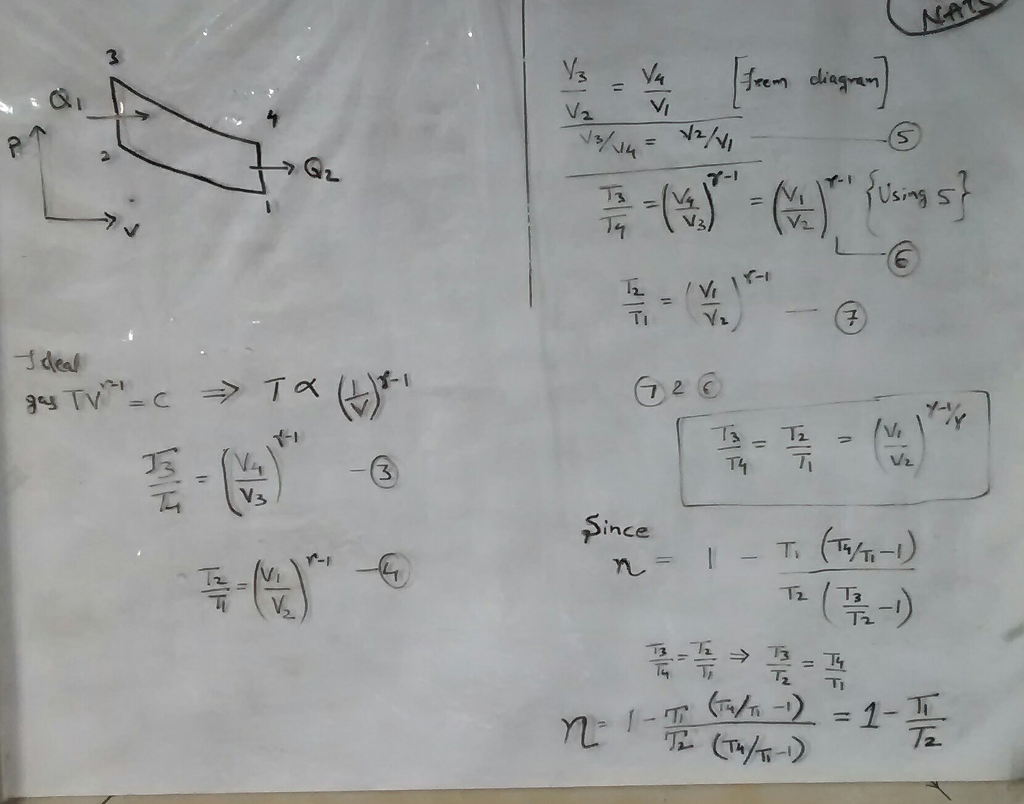 NATS
3
Q1
4
P
2
Q2
1
V
Ideal
gas TV^γ-1 = C ⇒ T ∝ (1/V)^γ-1
T3/T4 = (V4/V3)^γ-1 - ③
T2/T1 = (V1/V2)^γ-1 - ④
V3/V2 = V4/V1 [from diagram]
V3/V4 = V2/V1 - ⑤
T3/T4 = (V4/V3)^γ-1 = (V1/V2)^γ-1 {Using 5}
⑥
T2/T1 = (V1/V2)^γ-1 - ⑦
⑦ & ⑥
T3/T4 = T2/T1 = (V1/V2)^γ-1/γ
Since
η = 1 - T1 (T4/T1 - 1) / T2 (T3/T2 - 1)
T3/T4 = T2/T1 ⇒ T3/T2 = T4/T1
η = 1 - T1/T2 (T4/T1 - 1)/(T4/T1 - 1) = 1 - T1/T2